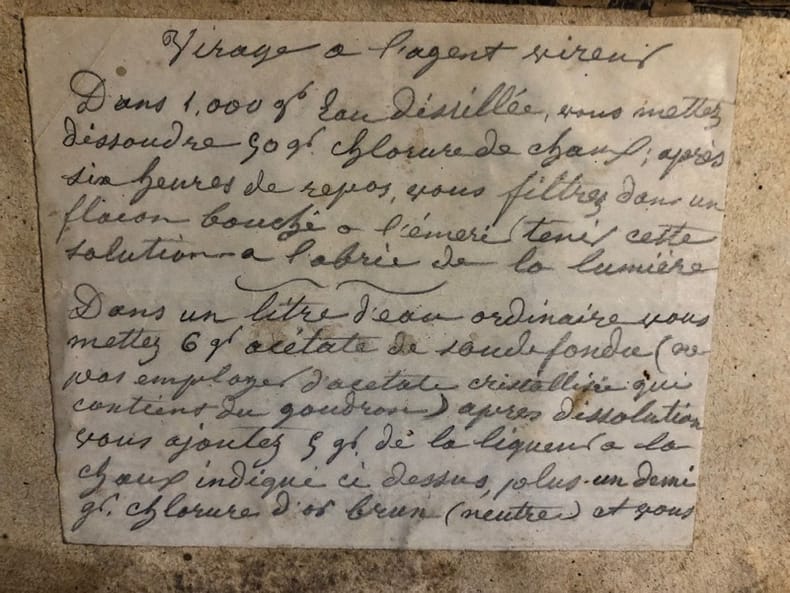 Virage a l'agent vireur
Dans 1,000 gr Eau distillée, vous mettez
dissoudre 50 gr. chlorure de chaux; après
six heures de repos, vous filtrez dans un
flacon bouché a l'émeri tenir cette
solution a l'abrie de la lumière
Dans un litre d'eau ordinaire vous
mettez 6 gr acétate de soude fondu (ne
pas employer d'acetate cristallisé qui
contiens du goudron) après dissolution
vous ajoutez 5 gr. de la liqueur a la
chaux indiqué ci dessus, plus un demi
gr. chlorure d'or brun (neutre) et vous